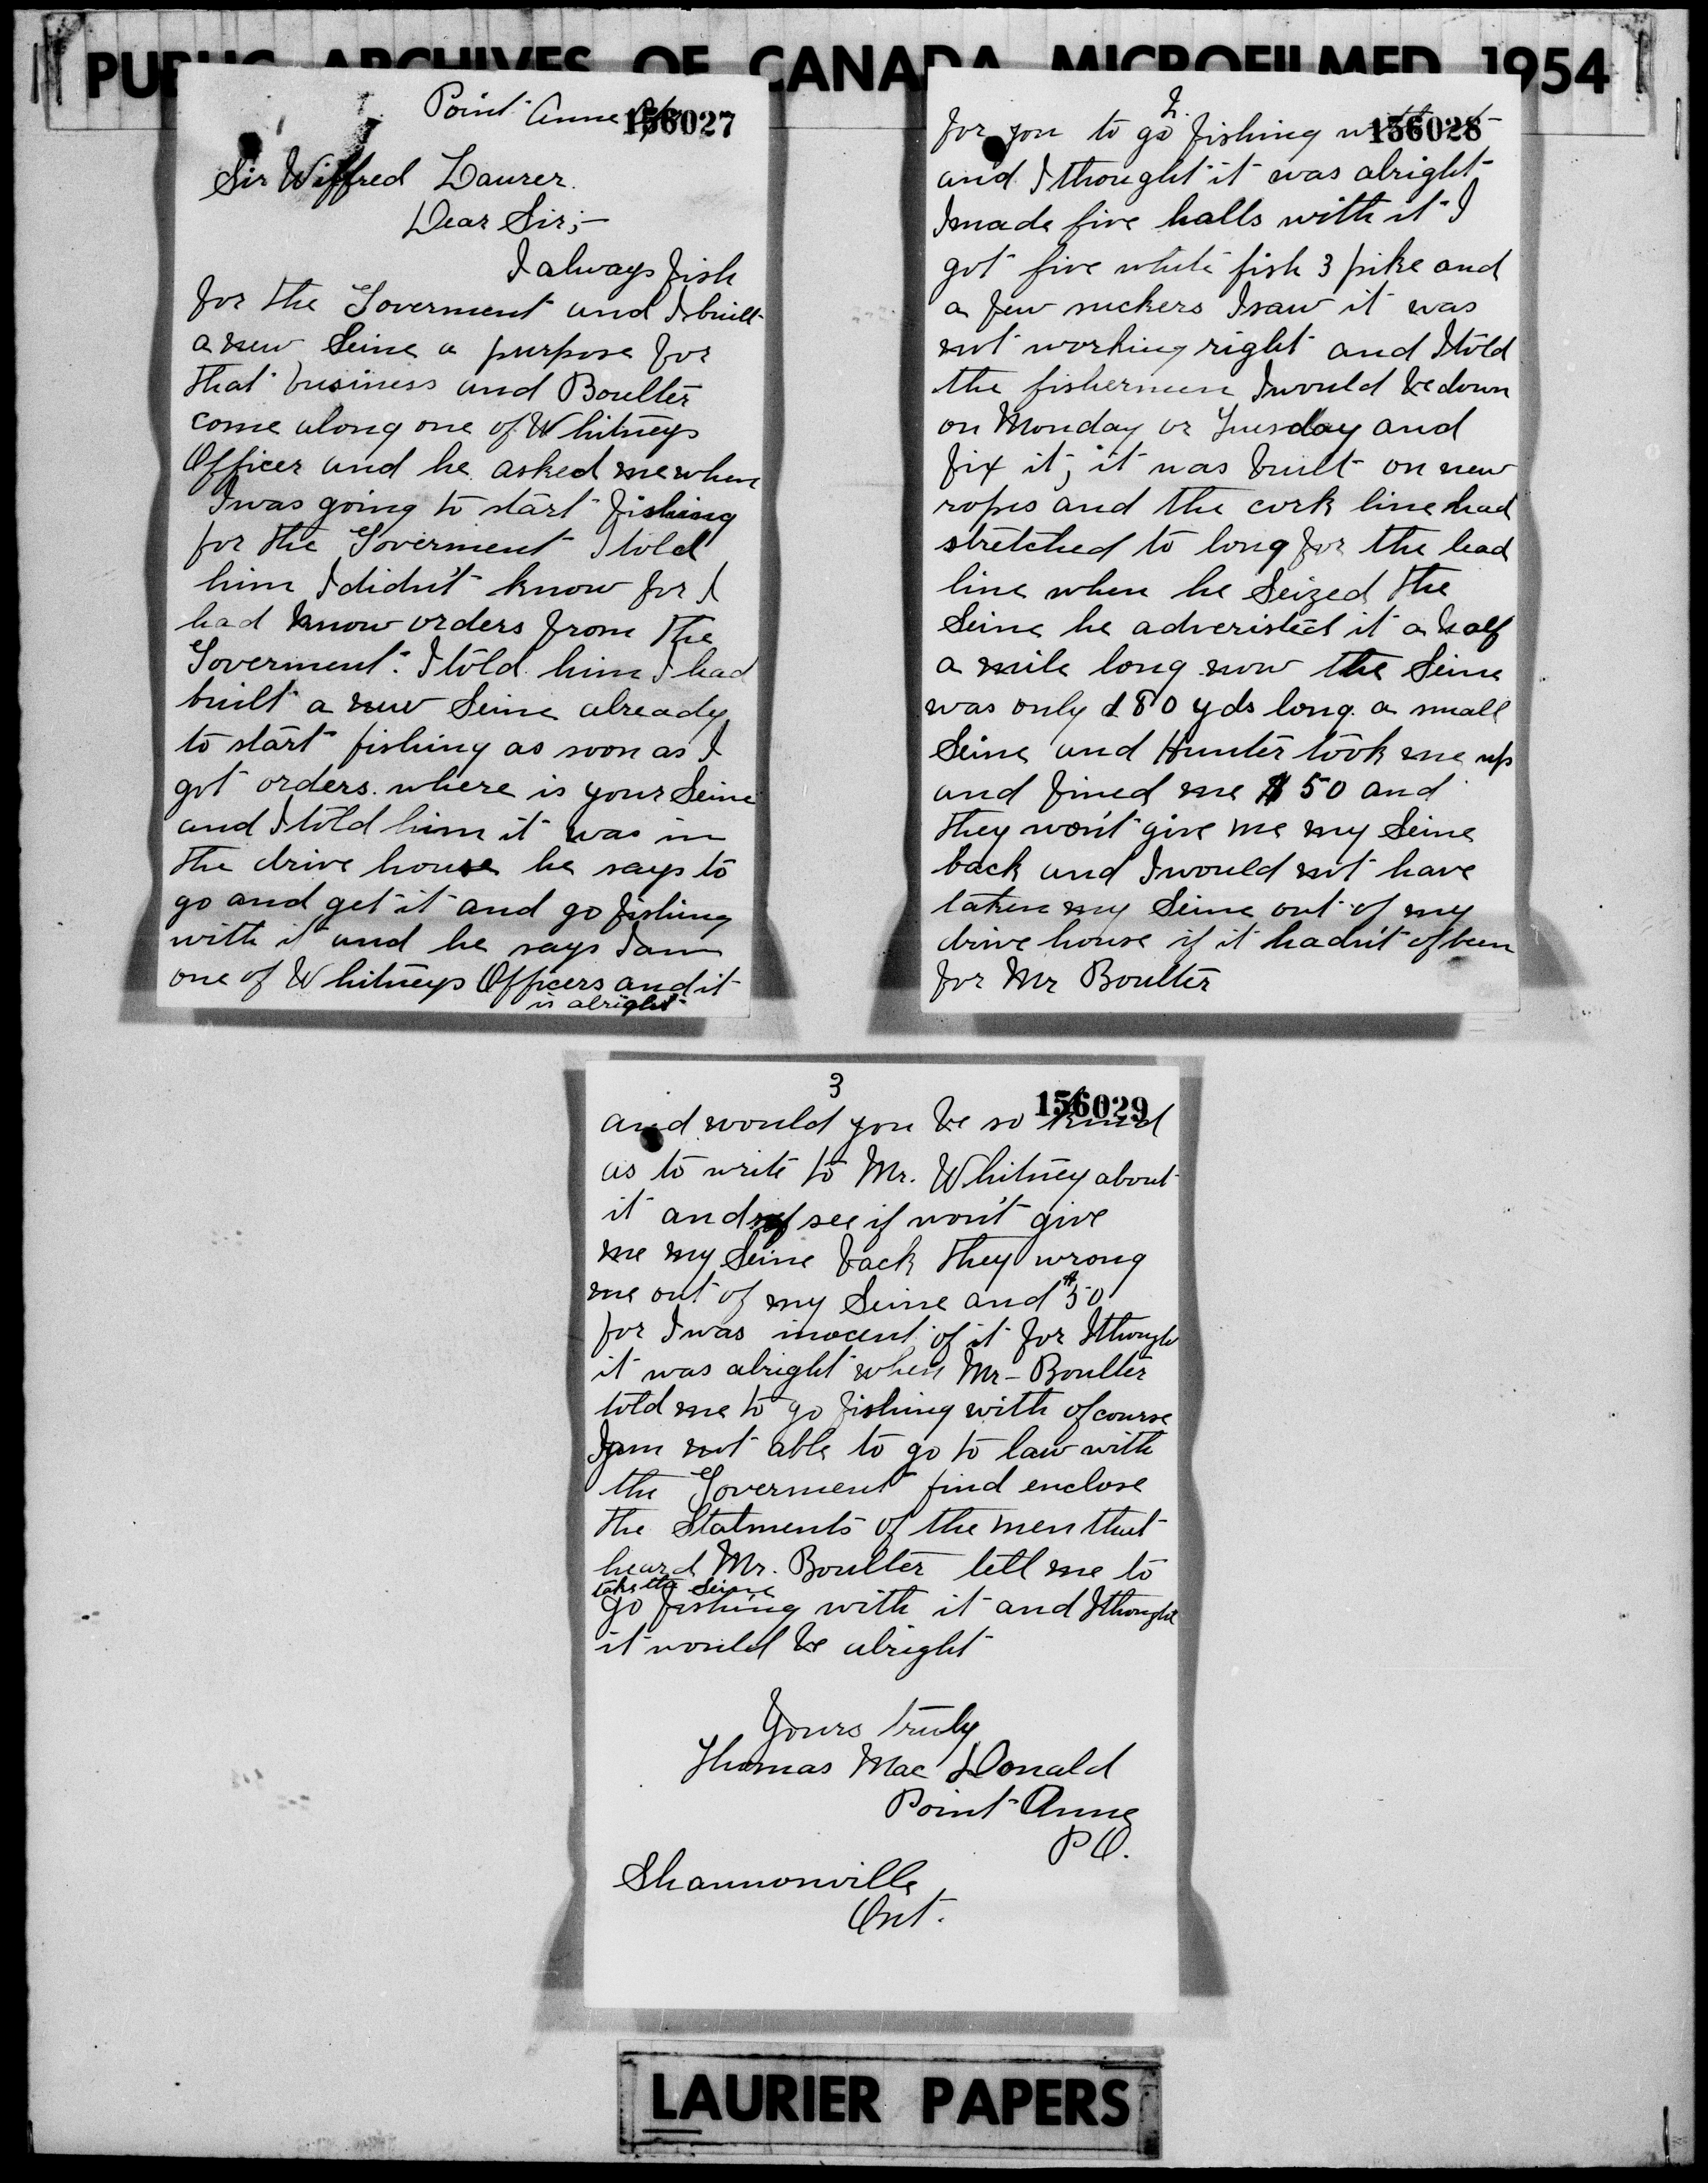 PUBLIC ARCHIVES OF CANADA MICROFILMED 1954
Point Anne
156027
Sir Wilfred Laurer.
Dear Sir;-
I always fish
for the Goverment and I built
a new Seine a purpose for
that business and Boulter
come along one of Whitneys
Officer and he asked me when
I was going to start fishing
for the Goverment I told
him I didn't know for I
had know orders from the
Goverment. I told him I had
built a new Seine already
to start fishing as soon as I
got orders. where is your Seine
and I told him it was in
the drive house he says to
go and get it and go fishing
with it and he says I am
one of Whitneys Officers and it
is alright
2.
156028
for you to go fishing with it
and I thought it was alright
I made five halls with it I
got five white fish 3 pike and
a few suckers I saw it was
not working right and I told
the fishermen I would be down
on Monday or Tuesday and
fix it; it was built on new
ropes and the cork line had
stretched to long for the lead
line when he Seized the
Seine he adveristed it a half
a mile long now the Seine
was only 180 yds long. a small
Seine and Hunter took me up
and fined me $50 and
they won't give me my Seine
back and I would not have
taken my Seine out of my
drive house if it hadn't of been
for Mr Boulter
3
156029
and would you be so kind
as to write to Mr. Whitney about
it and see if won't give
me my Seine back they wrong
me out of my Seine and $50
for I was inocent of it for I though
it was alright when Mr - Boulter
told me to go fishing with of course
I am not able to go to law with
the Goverment find enclose
the Statments of the men that
heard Mr. Boulter tell me to
take the Seine
go fishing with it and I thought
it would be alright
Yours truly
Thomas Mac Donald
Point Anne
P O.
Shannonville
Ont.
LAURIER PAPERS